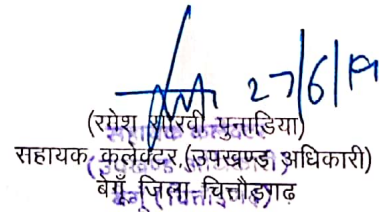 27/6/19
(रमेश सीरवी पुनाडिया)
सहायक कलेक्टर,(उपखण्ड अधिकारी)
बेगूँ जिला-चित्तौड़गढ़